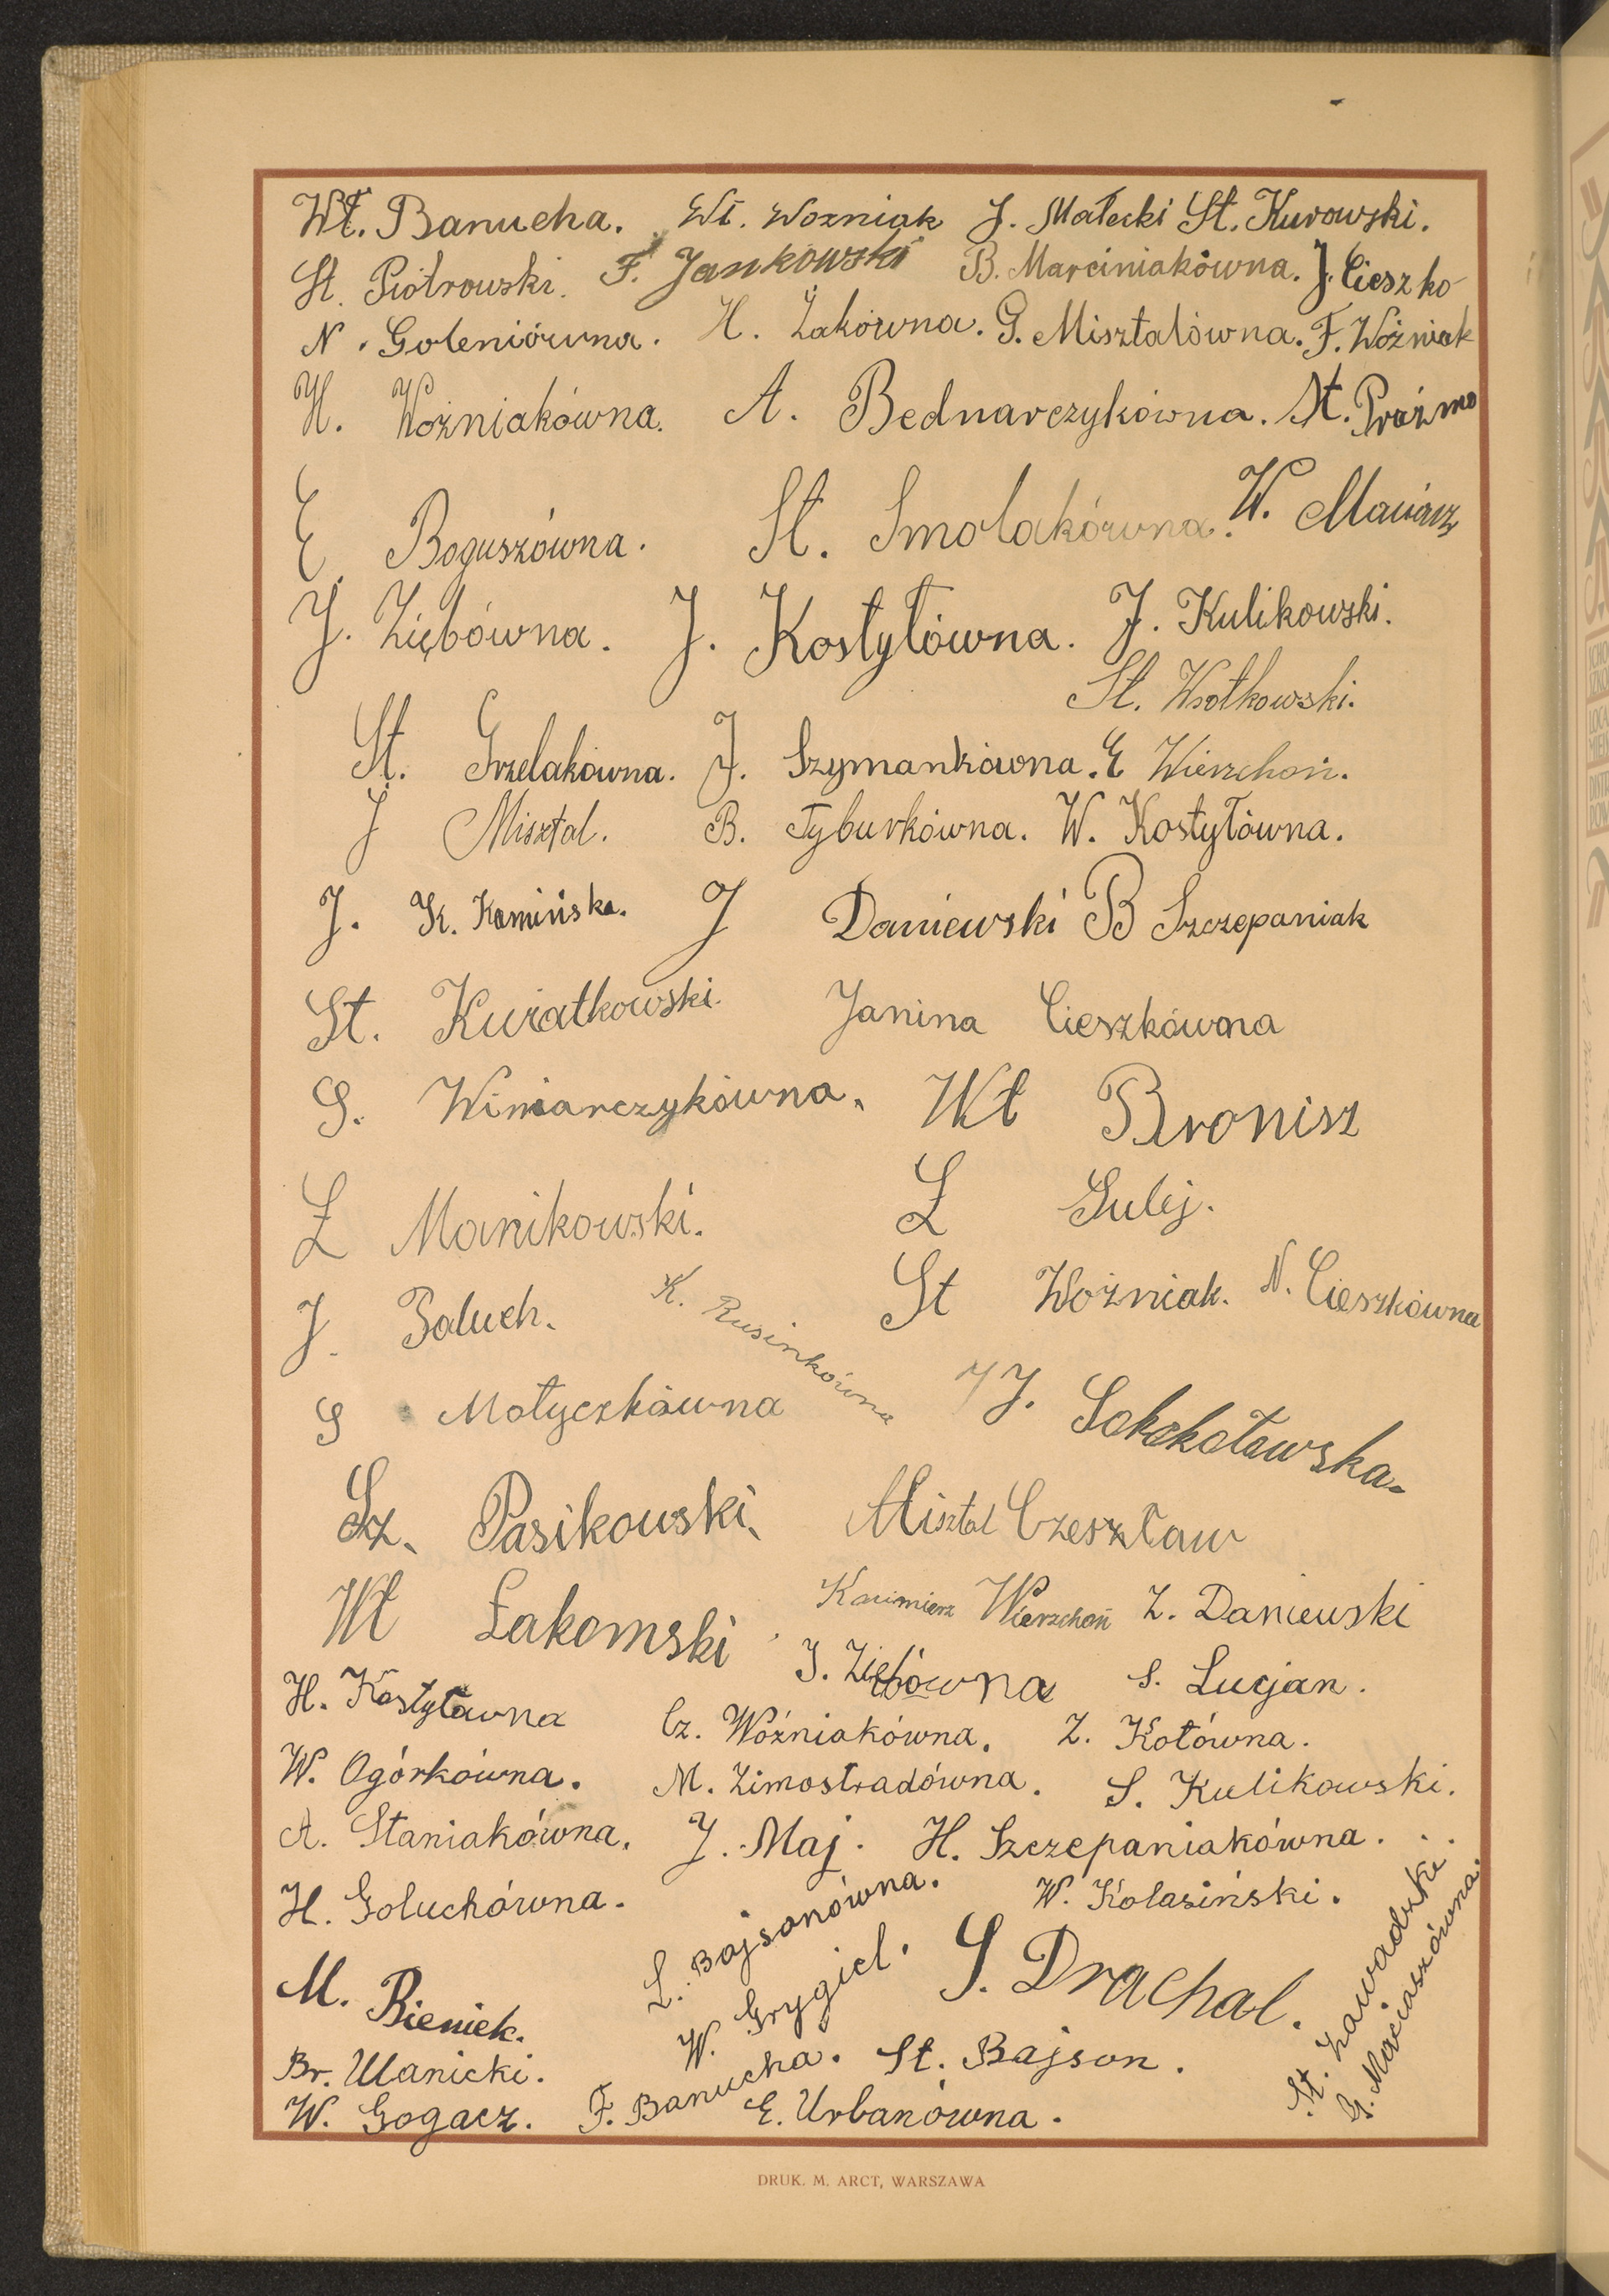 Wł. Banucha. Wł. Wozniak J. Małecki St. Kurowski.
St. Piotrowski. F. Jankowski B. Marciniakówna. J. Cieszko
N. Goleniówna. H. Żakówna. G. Misztalówna. F. Woźniak
H. Woźniakówna. A. Bednarczykówna. St. Prażmo
E. Boguszówna. St. Smolakówna. W. Maciasz
J. Ziębówna. J. Kostyłówna. J. Kulikowski.
St. Wsołkowski.
St. Grzelakówna. J. Szymankówna. E Wierzchoń.
J Misztal. B. Tyburkówna. W. Kostyłówna.
J. K. Kamińska. J Daniewski B Szczepaniak
St. Kwiatkowski. Janina Cieszkówna
G. Winiarczykówna. Wł Bronisz
Z Manikowski. Z Gulij.
J. Paluch. K. Rusinkówna St Woźniak. N. Cieszkówna
G Motyczkówna J. Sokokołowska.
Sz. Pasikowski. Misztal Czeszław
Wł Łakomski Kazimierz Wierzchoń Z. Daniewski
H. Kostyławna J. Ziębówna S. Lucjan.
Cz. Woźniakówna. Z. Kotówna.
W. Ogórkówna. M. Zimostradówna. S. Kulikowski.
A. Staniakówna. J. Maj. H. Szczepaniakówna.
H. Goluchówna. L. Bajsonówna. W. Kolasiński.
M. Bieniek. W. Grygiel. S. Drachal. St. Zawadzki
Br. Ulanicki. F. Banucha. St. Bajson. G. Maciaszówna.
W. Gogacz. E. Urbanówna.
DRUK. M. ARCT, WARSZAWA